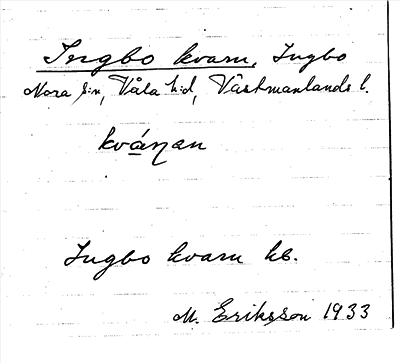 Ingbo kvarn, Ingbo
Nora s:n, Våla h:d, Västmanlands l.
kváꞃan
Ingbo kvarn kb.
M. Eriksson 1933